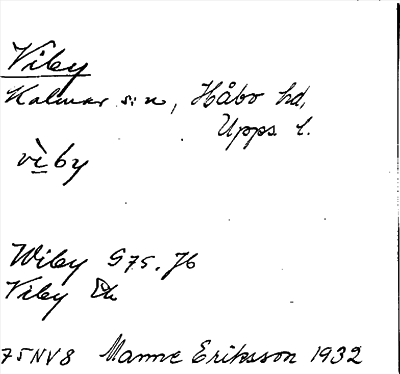 Viby
Kalmar sn, Håbo hd,
Upps l.
vìby
Wiby G75. Jb
Viby Ek
75NV8 Manne Eriksson 1932